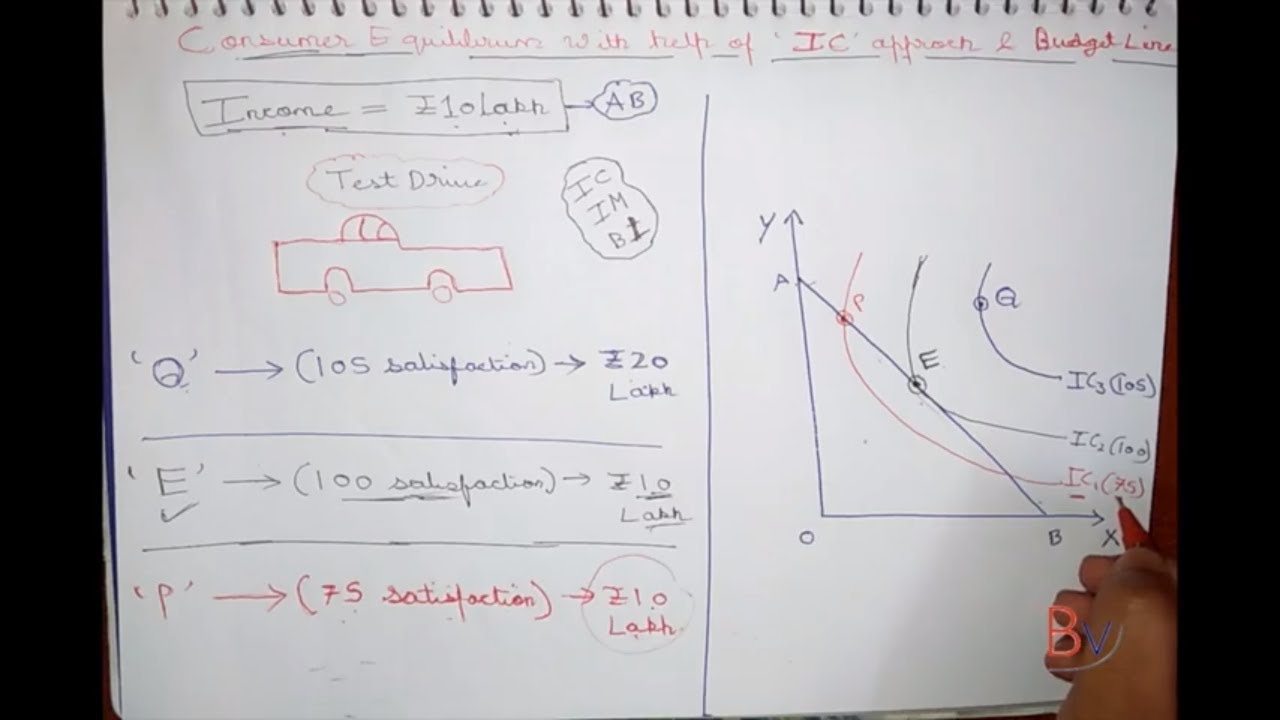 Consumer Equilibrium with help of 'IC' approch & Budget Line
Income = ₹10 Lakh → AB
Test Drive
IC
IM
BI
'Q' → (105 satisfaction) → ₹20
Lakh
'E' → (100 satisfaction) → ₹10
Lakh
'P' → (75 satisfaction) → ₹10
Lakh
Y
A
P
Q
E
IC3 (105)
IC2 (100)
IC1 (75)
O
B
X
BV